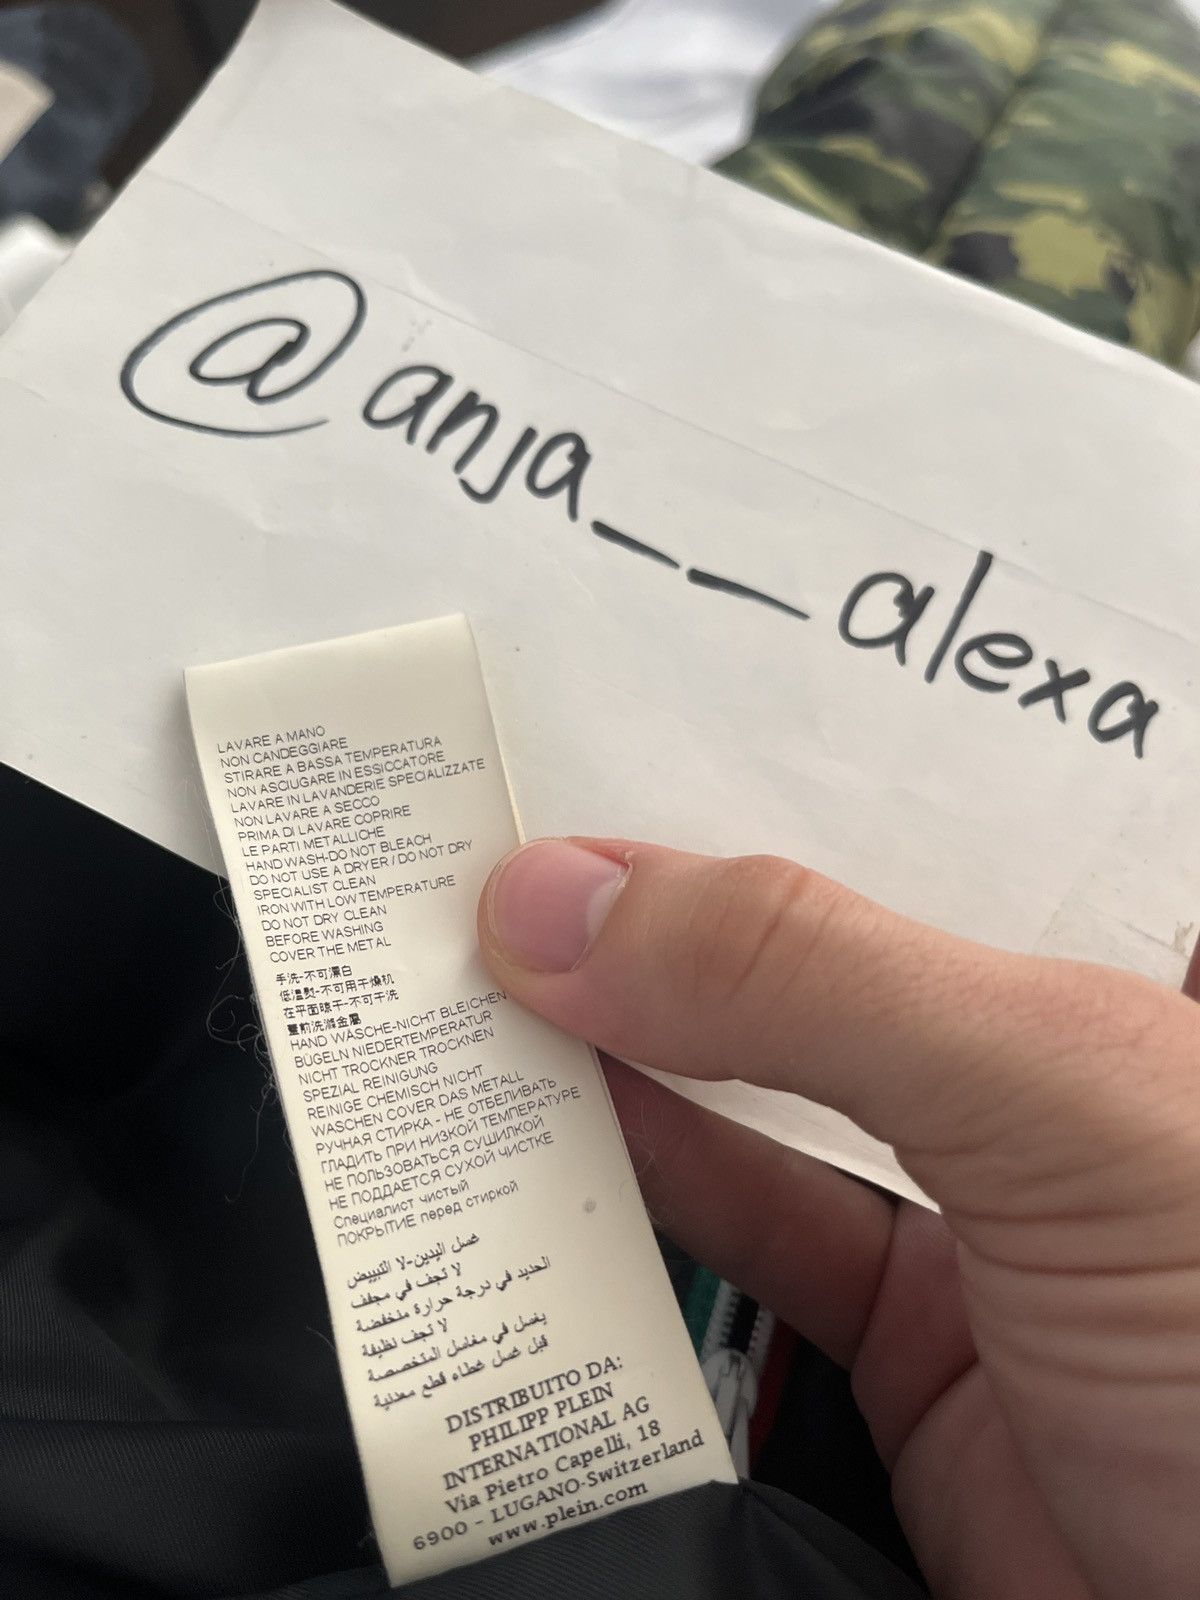 @anja__alexa
LAVARE A MANO
NON CANDEGGIARE
STIRARE A BASSA TEMPERATURA
NON ASCIUGARE IN ESSICCATORE
LAVARE IN LAVANDERIE SPECIALIZZATE
NON LAVARE A SECCO
PRIMA DI LAVARE COPRIRE
LE PARTI METALLICHE
HAND WASH-DO NOT BLEACH
DO NOT USE A DRYER / DO NOT DRY
SPECIALIST CLEAN
IRON WITH LOW TEMPERATURE
DO NOT DRY CLEAN
BEFORE WASHING
COVER THE METAL
手洗-不可漂白
低溫熨-不可用干燥机
在平面晾干-不可干洗
前洗滌金屬
HAND WASCHE-NICHT BLEICHEN
BÜGELN NIEDERTEMPERATUR
NICHT TROCKNER TROCKNEN
SPEZIAL REINIGUNG
REINIGE CHEMISCH NICHT
WASCHEN COVER DAS METALL
РУЧНАЯ СТИРКА - НЕ ОТБЕЛИВАТЬ
ГЛАДИТЬ ПРИ НИЗКОЙ ТЕМПЕРАТУРЕ
НЕ ПОЛЬЗОВАТЬСЯ СУШИЛКОЙ
НЕ ПОДДАЕТСЯ СУХОЙ ЧИСТКЕ
Специалист чистый
ПОКРЫТИЕ перед стиркой
غسل اليدين-لا التبييض
لا تجف في مجفف
الحديد في درجة حرارة منخفضة
لا تجف نظيفة
يغسل في مغاسل المتخصصة
قبل غسل غطاء قطع معدنية
DISTRIBUITO DA:
PHILIPP PLEIN
INTERNATIONAL AG
Via Pietro Capelli, 18
6900 - LUGANO-Switzerland
www.plein.com